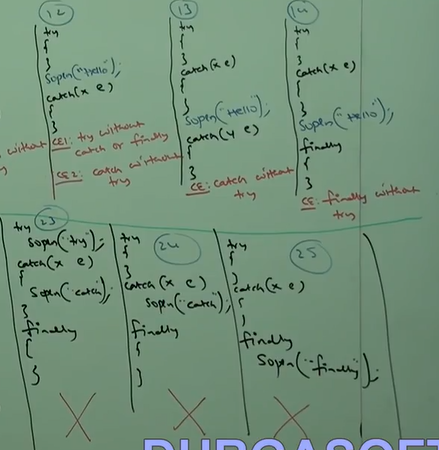 12
try
{
}
Sopln("Hello");
catch(x e)
{
}
CE1: try without
catch or finally
CE2: catch without
try
without
13
try
{
}
catch(x e)
{
}
Sopln("Hello");
catch(y e)
{
}
CE: catch without
try
14
try
{
}
catch(x e)
{
}
Sopln("Hello");
finally
{
}
CE: finally without
try
23
try
Sopln("try");
catch(x e)
{
Sopln("catch");
}
finally
{
}
24
try
{
}
catch(x e)
Sopln("catch");
finally
{
}
25
try
{
}
catch(x e)
{
}
finally
Sopln("finally");